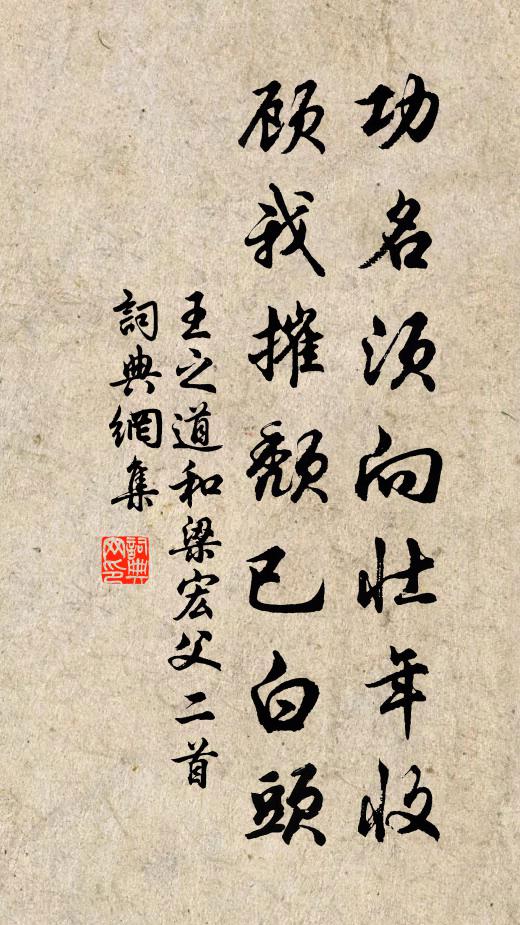 功名須向壮年收
顾我摧颓已白頭
王之道和梁宏父二首
詞典網集
詞典网印